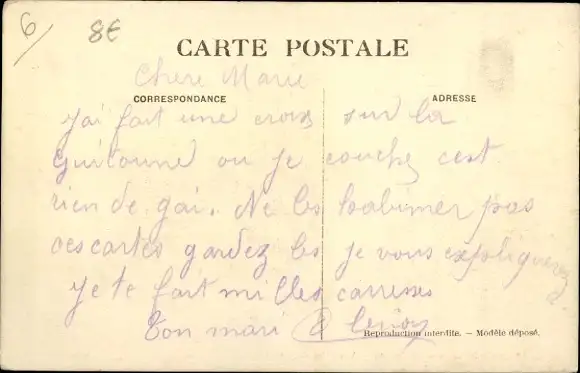 6/ 8€
CARTE POSTALE
Chere Marie
CORRESPONDANCE ADRESSE
j'ai fait une croix sur la
ou je couche c'est
rien de gai. Ne les habimer pas
ces cartes gardez les je vous expliquerez
je te fait milles carresses
Ton mari
Reproduction interdite. — Modèle déposé.